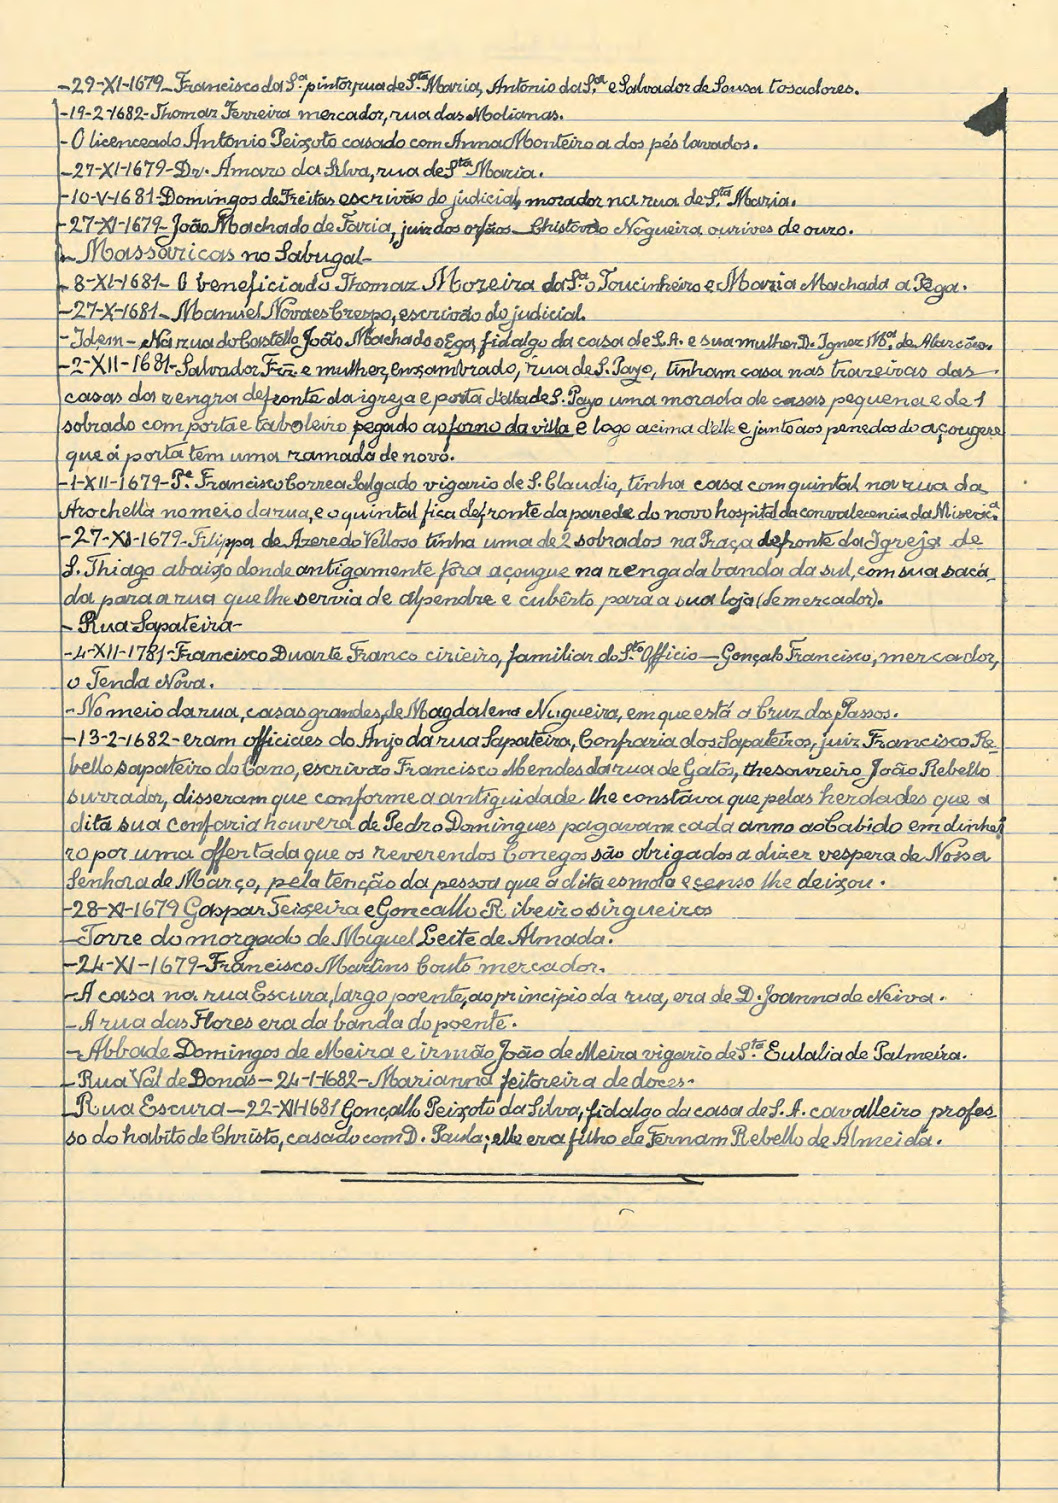 -29-XI-1679-Francisco da S.ª pintor, rua de S.ta Maria, Antonio da S.ª e Salvador de Sousa tosadores.
-19-2-1682-Thomaz Ferreira mercador, rua das Molianas.
-O licenceado Antonio Peixoto casado com Anna Monteiro a dos pés lavados.
-27-XI-1679-Dr. Amaro da Silva, rua de S.ta Maria.
-10-V-1681-Domingos de Freitas escrivão do judicial, morador na rua de S.ta Maria.
-27-XI-1679-João Machado de Faria, juiz dos orfãos - Christovão Nogueira ourives de ouro.
- Massaricas no Sabugal-
- 8-XI-1681- O beneficiado Thomaz Moreira da S.ª o Toucinheiro e Maria Machada a Pega.
-27-X-1681-Manuel Novaes Crespo, escrivão do judicial.
-Idem-Na rua do Castello João Machado d'Eça, fidalgo da casa de S.A. e sua mulher D. Ignez M.ª de Alarcão.
-2-XII-1681-Salvador Frz. e mulher, enxambrado, rua de S. Payo, tinham casa nas trazeiras das
casas da rengra defronte da igreja e porta d'ella de S. Payo uma morada de casas pequena e de 1
sobrado com porta e taboleiro pegado ao forno da villa e logo acima d'elle e junto aos penedos do açougue
que á porta tem uma ramada de novo.
-1-XII-1679-P.e Francisco Correa Salgado vigario de S. Claudio, tinha casa com quintal na rua da
Arochella no meio da rua, e o quintal fica defronte da parede do novo hospital da convalecencia da Miseric.ª
-27-XI-1679-Filippa de Azeredo Velloso tinha uma de 2 sobrados na Praça defronte da Igreja de
S. Thiago abaixo donde antigamente fôra açougue na renga da banda da sul, com sua saca-
da para a rua que lhe servia de alpendre e cubêrto para a sua loja (de mercador).
- Rua Sapateira-
-4-XII-1781-Francisco Duarte Franco cirieiro, familiar do S.to Officio - Gonçalo Francisco, mercador,
o Tenda Nova.
-No meio da rua, casas grandes, de Magdalena Nugueira, em que está a Cruz dos Passos.
-13-2-1682-eram officiaes do Anjo da rua Sapateira, Confraria dos Sapateiros, juiz Francisco Re-
bello sapateiro do Cano, escrivão Francisco Mendes da rua de Gatos, thesoureiro João Rebello
surrador, disseram que conforme a antiguidade lhe constava que pelas herdades que a
dita sua confraria houvera de Pedro Domingues pagavam cada anno ao Cabido em dinhei
ro por uma offertada que os reverendos Conegos são obrigados a dizer vespera de Nossa
Senhora de Março, pela tenção da pessoa que a dita esmola e censo lhe deixou.
-28-XI-1679 Gaspar Teixeira e Goncallo Ribeiro sirgueiros
-Torre do morgado de Miguel Leite de Almada.
-24-XI-1679-Francisco Martins Couto mercador.
-A casa na rua Escura, largo poente, ao principio da rua, era de D. Joanna de Neiva.
-A rua das Flores era da banda do poente.
-Abbade Domingos de Meira e irmão João de Meira vigario de S.ta Eulalia de Palmeira.
-Rua Val de Donas-24-1-1682-Marianna feitoreira de doces-
-Rua Escura-22-XII-1681 Gonçallo Peixoto da Silva, fidalgo da casa de S.A. cavalleiro profes-
so do habito de Christo, casado com D. Paula; elle era filho de Fernam Rebello de Almeida.